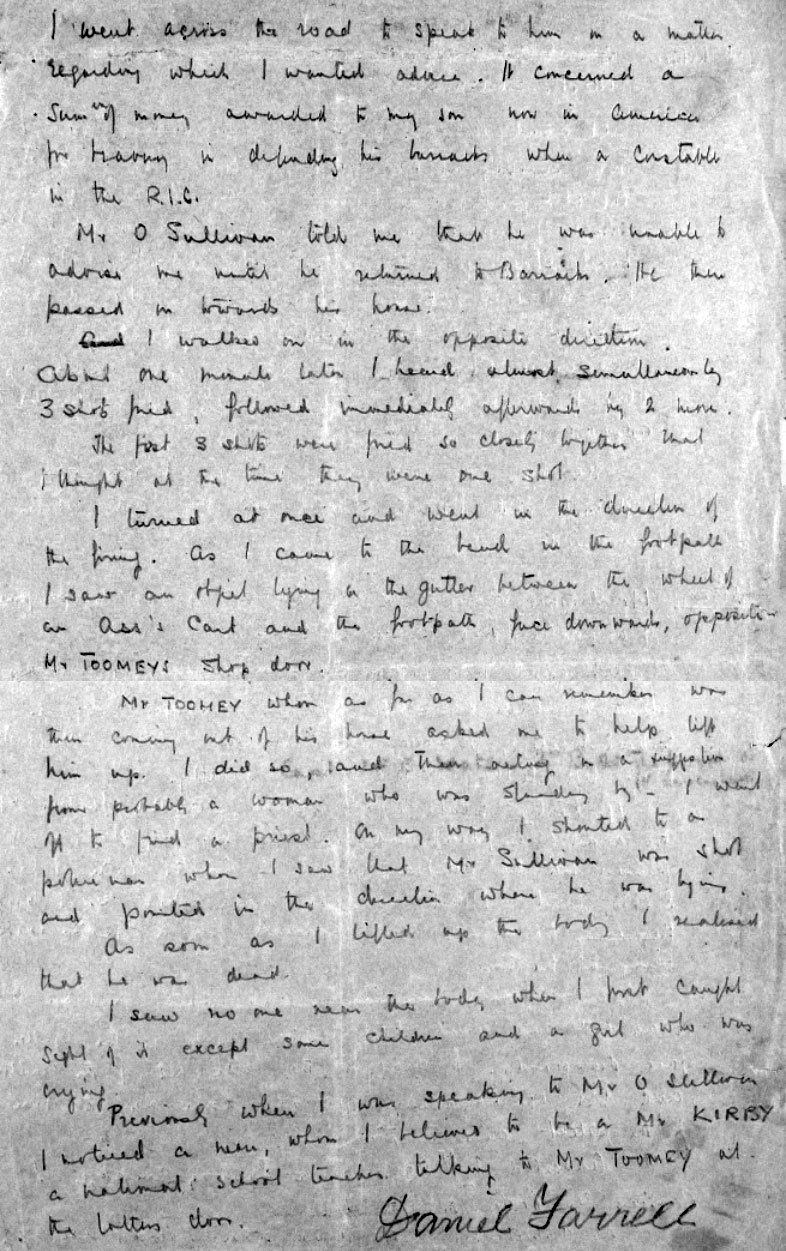 I went across the road to speak to him on a matter
regarding which I wanted advice. It concerned a
sum of money awarded to my son now in America
for bravery in defending his barracks when a Constable
in the R.I.C.
Mr O Sullivan told me that he was unable to
advise me until he returned to Barracks. He then
passed on towards his house.
I walked on in the opposite direction.
About one minute later I heard almost simultaneously
3 shots fired, followed immediately afterwards by 2 more.
The first 3 shots were fired so closely together that
I thought at the time they were one shot.
I turned at once and went in the direction of
the firing. As I came to the bend in the footpath
I saw an object lying in the gutter between the wheel of
an Ass's Cart and the footpath, face downwards, opposite
Mr TOOMEYS shop door.
Mr TOOMEY whom as far as I can remember was
then coming out of his house asked me to help lift
him up. I did so, and then acting on a suggestion
from probably a woman who was standing by - I went
off to find a priest. On my way I shouted to a
policeman whom I saw that Mr Sullivan was shot
and pointed in the direction where he was lying.
As soon as I lifted up the body I realised
that he was dead.
I saw no one near the body when I first caught
sight of it except some children and a girl who was
crying.
Previously when I was speaking to Mr O Sullivan
I noticed a man, whom I believes to be a Mr KIRBY
a national school teacher talking to Mr TOOMEY at
the latters door.
Daniel Farrell